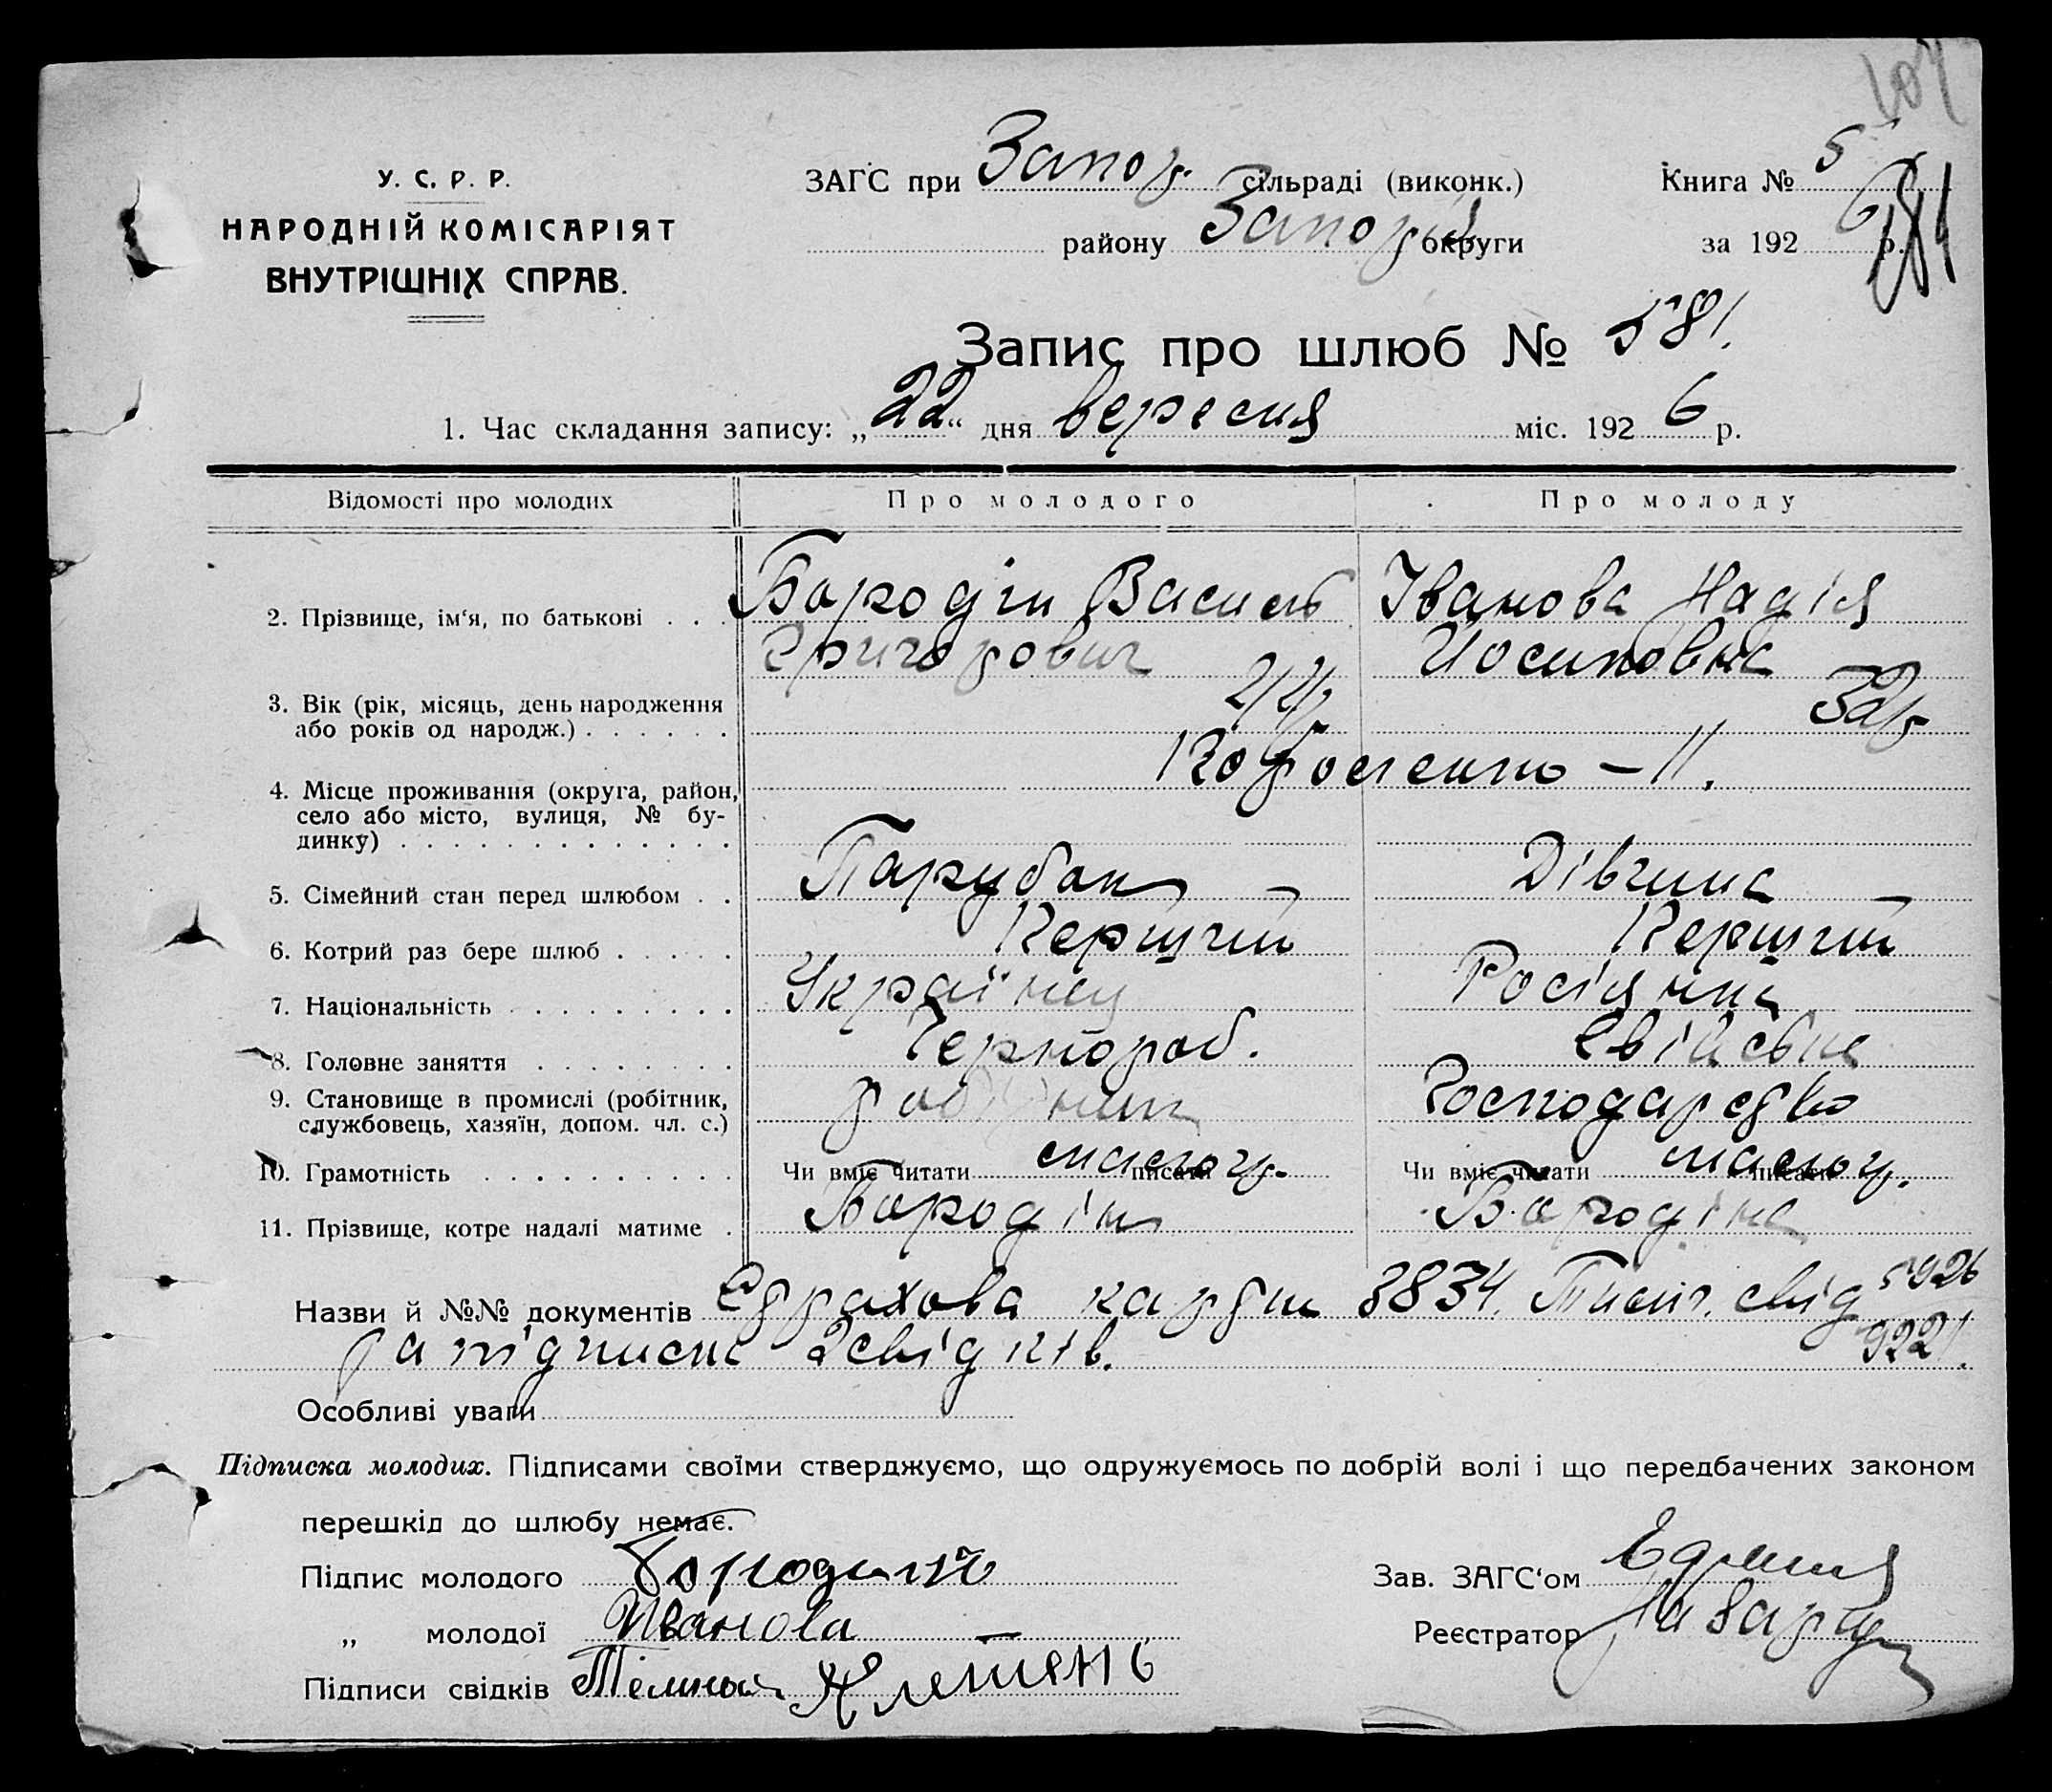 У. С. Р. Р.
НАРОДНІЙ КОМІСАРІЯТ
ВНУТРІШНІХ СПРАВ.
ЗАГС при Запор. сільраді (виконк.)
району Запоріз округи
Книга № 5
за 192 6 р.
Запис про шлюб № 581.
1. Час складання запису: „22“ дня вересня міс. 192 6 р.
Відомості про молодих
Про молодого
Про молоду
2. Прізвище, ім‘я, по батькові
Бародін Василь
Григорович
Іванова Надія
Йосиповна
3. Вік (рік, місяць, день народження
або років од народж.)
32р
4. Місце проживання (округа, район,
село або місто, вулиця, № бу-
динку)
– 11.
5. Сімейний стан перед шлюбом
Парубок –
Дівчина –
6. Котрий раз бере шлюб
Перший
Перший
7. Національність
Українец
Росіянка
8. Головне заняття
Чернороб.
Свійське
9. Становище в промислі (робітник,
службовець, хазяїн, допом. чл. с.)
робітник
Господарство
10. Грамотність
Чи вміє читати писати
Чи вміє читати писати
11. Прізвище, котре надалі матиме
Бародін
Бародіна
Назви й №№ документів Страхова картк 3834. свід 5926
та підписка 2 свідків. 9221.
Особливі уваги
Підписка молодих. Підписами своїми стверджуємо, що одружуємось по добрій волі і що передбачених законом
перешкід до шлюбу немає.
Підпис молодого Бородинъ
„ молодої Иванова
Підписи свідків
Зав. ЗАГС‘ом
Реєстратор